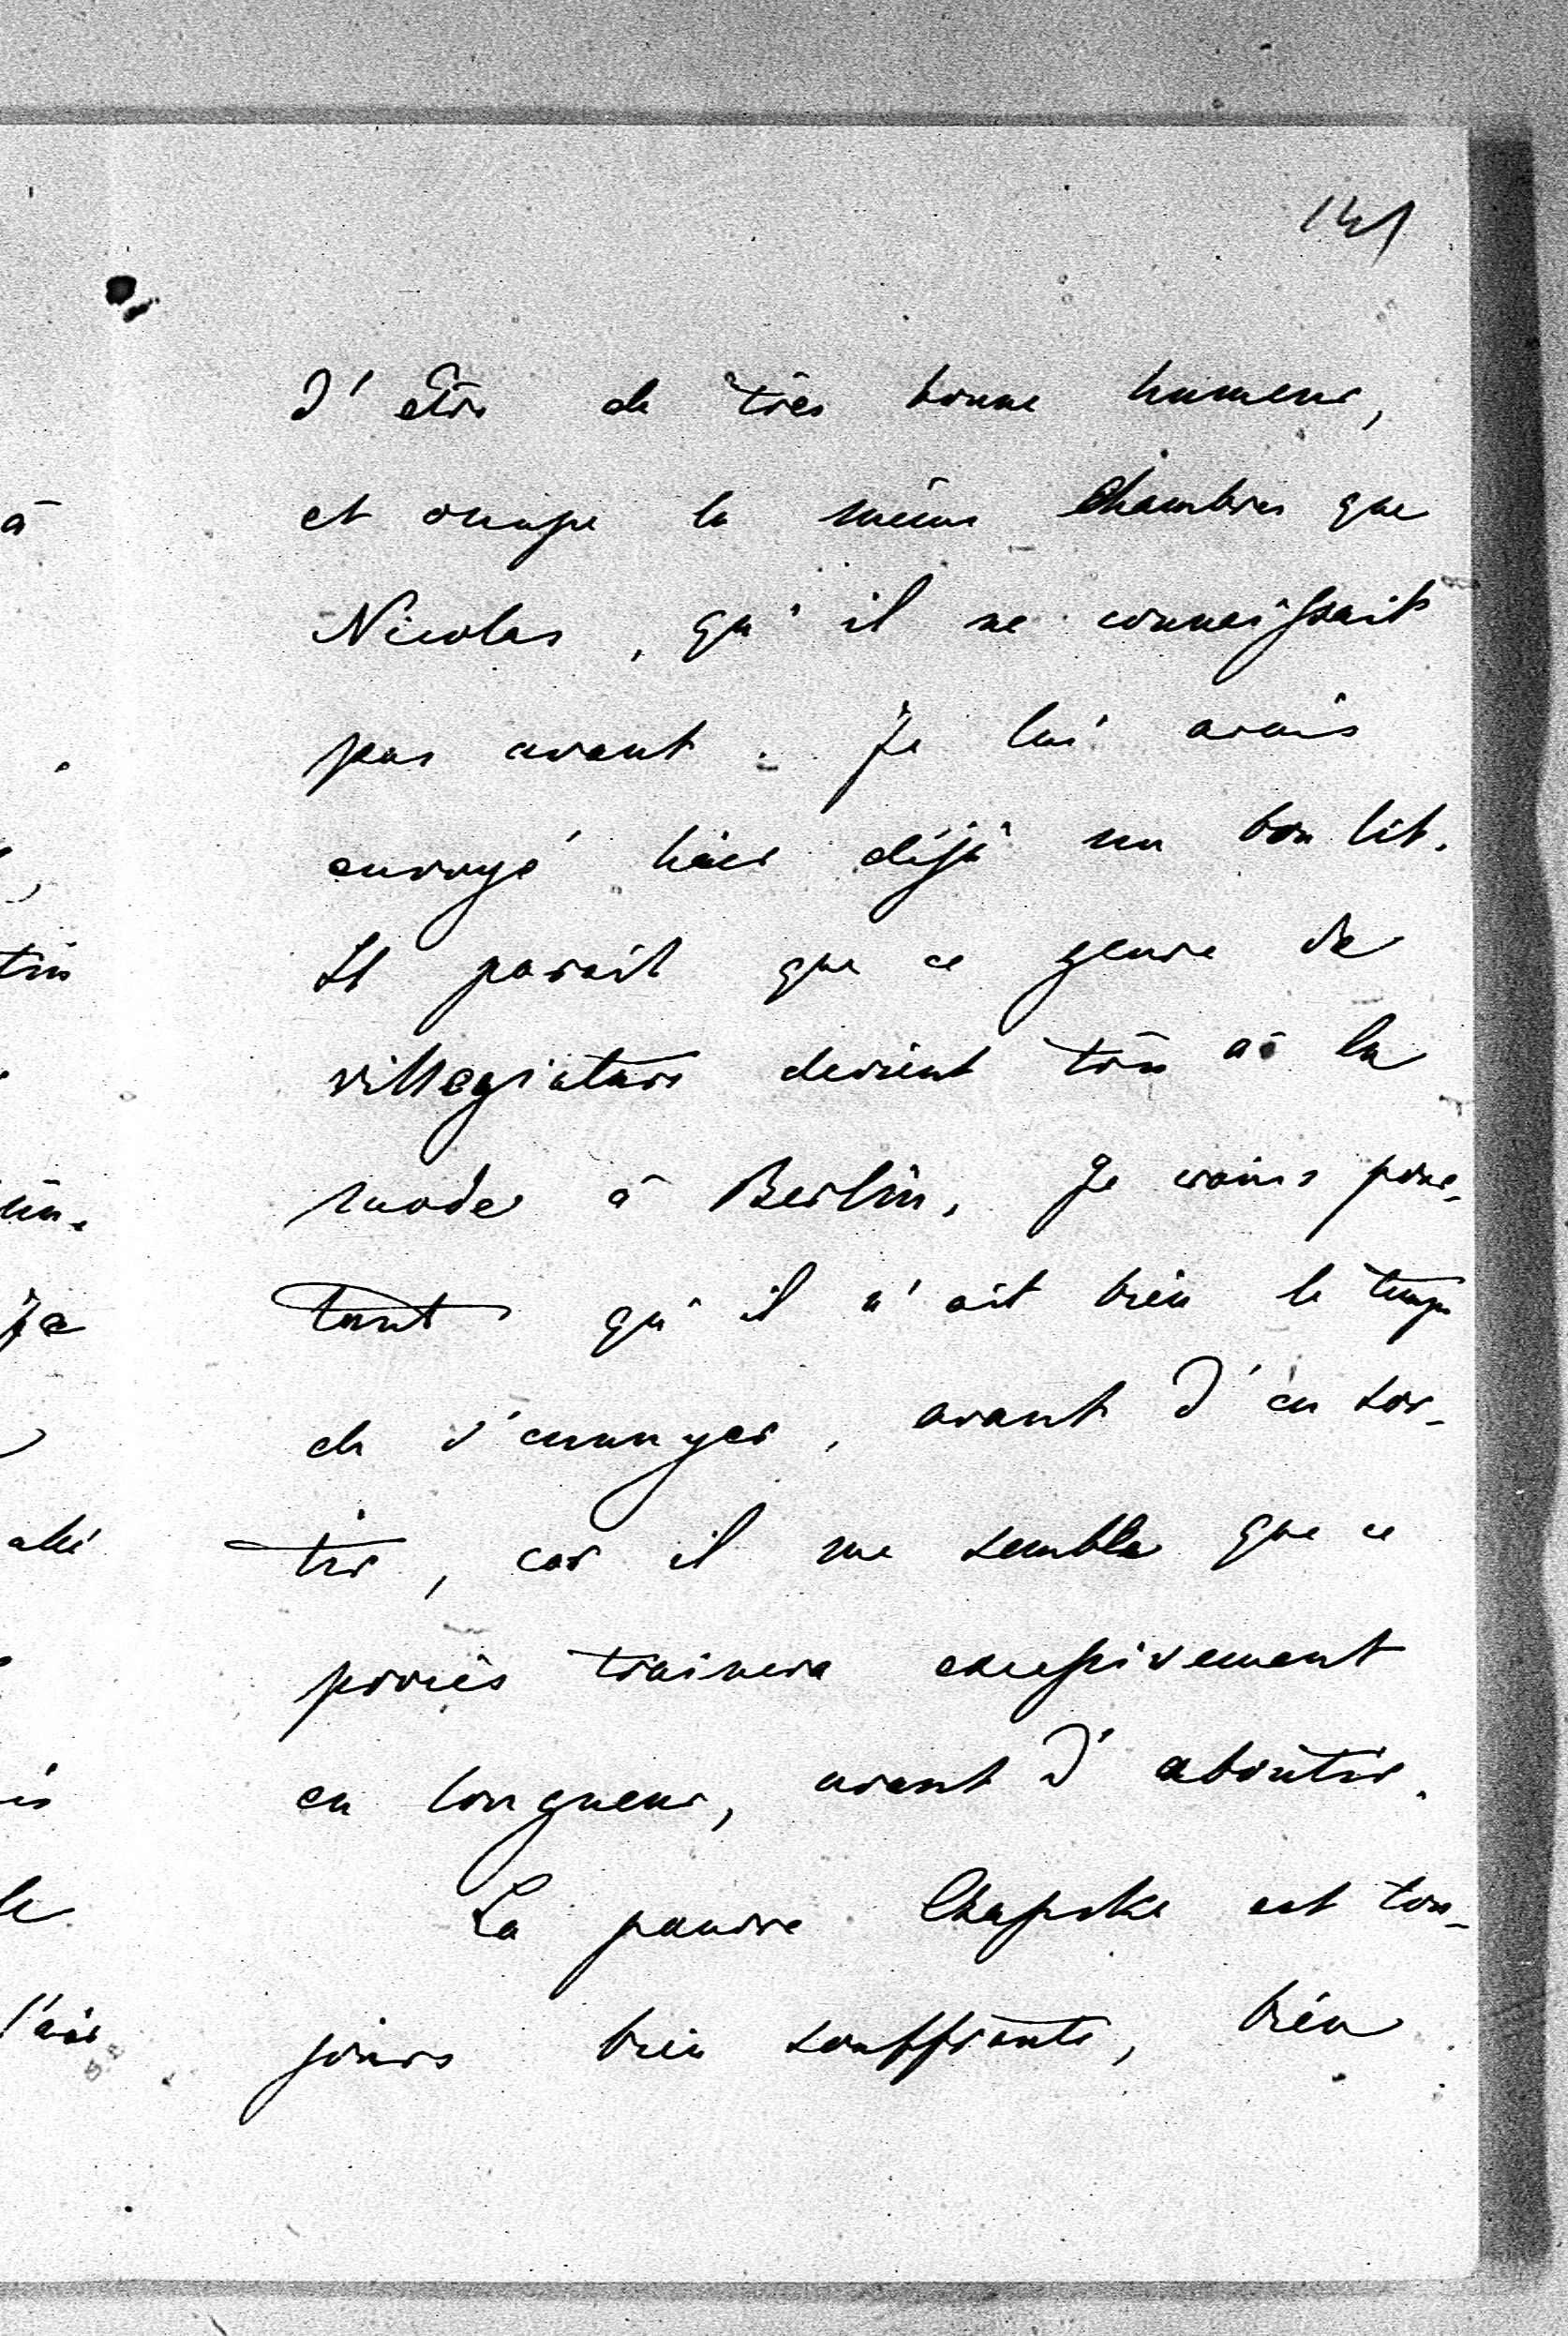 141
d'être de très bonne humeur,
et occupe la même chambre que
Nicolas, qu'il ne connaissait
pas avant. Je lui avais
envoyé hier déjà un bon lit.
Il parait que ce genre de
villegiature devient très à la
mode à Berlin. Je crains pour-
tant qu'il n'ait bien le temps
de s'ennuyer, avant d'en sor-
tir, car il me semble que ce
procès trainera excessivement
en longueur, avant d'aboutir.
La pauvre est tou-
jours bien souffrante, bien